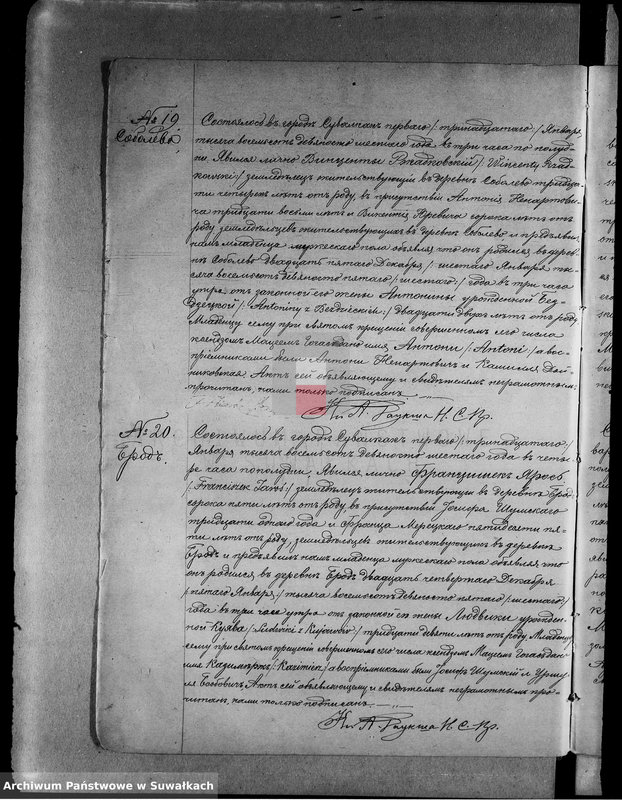 № 19
Соболево
Состоялось въ городѣ Сувалкахъ перваго /: тринадцатаго :/ Января
тысяча восемьсотъ девяносто шестаго года въ три часа по полуд-
ни. Явился лично Винценты /: Wincenty
:/ земледѣлецъ жительствующій въ деревнѣ Соболево тридца-
ти четырехъ лѣтъ отъ роду, въ присутствіи Антонія Ненартови-
ча тридцати восьми лѣтъ и Викентія сорока лѣтъ отъ
роду земледѣльцевъ жительствующихъ въ деревнѣ Соболево и предъяви-
намъ младенца мужескаго пола объявляя что онъ родился въ дерев-
нѣ Соболево двадцать пятаго Декабря /: шестаго Января ты-
сяча восемьсотъ девяносто пятаго /: шестаго :/ года въ три часа
утра отъ законной его жены Антонины урожденной Без-
дзецкой /: Antoniny z :/ двадцати двухъ лѣтъ отъ роду
Младенцу сему при святомъ крещеніи совершенномъ сего числа
ксендзомъ дано имя Антони /: Antoni :/ а вос-
пріемниками были Антони Ненартовичъ и Камилія
Актъ сей объявляющему и свидѣтелямъ неграмотнымъ
прочитанъ, нами только подписанъ.
Кс. А. Раукша Н. С. Пр.
№ 20.
Бродъ.
Состоялось въ городѣ Сувалкахъ перваго /: тринадцатаго :/
Января тысяча восемьсотъ девяносто шестаго года въ четы-
ре часа пополудни. Явился лично Францишекъ
/: Franciszek :/ земледѣлецъ жительствующій въ деревнѣ Бродъ
сорока пяти лѣтъ отъ роду, въ присутствіи Іосифа Шумскаго
тридцати одного года и Франца Мерецкаго пятидесяти пя-
ти лѣтъ отъ роду, земледѣльцевъ жительствующихъ въ деревнѣ
Бродъ и предъявилъ намъ младенца мужескаго пола объявляя что
онъ родился въ деревнѣ Бродъ двадцать четвертаго Декабря
/: пятаго Января :/ тысяча восемьсотъ девяносто пятаго /: шестаго :/
года въ три часа утра отъ законной его жены Людвики урожден-
ной /: Ludwiki z :/ тридцати девяти лѣтъ отъ роду. Младенцу
сему при святомъ крещеніи совершенномъ сего числа ксендзомъ дано
имя Казимиръ /: Kazimierz :/ а воспріемниками были Іосифъ Шумскій и Уршу-
ля Актъ сей объявляющему и свидѣтелямъ неграмотнымъ про-
читанъ, нами только подписанъ.
Кс. А. Раукша Н. С. Пр.
Archiwum Państwowe w Suwałkach